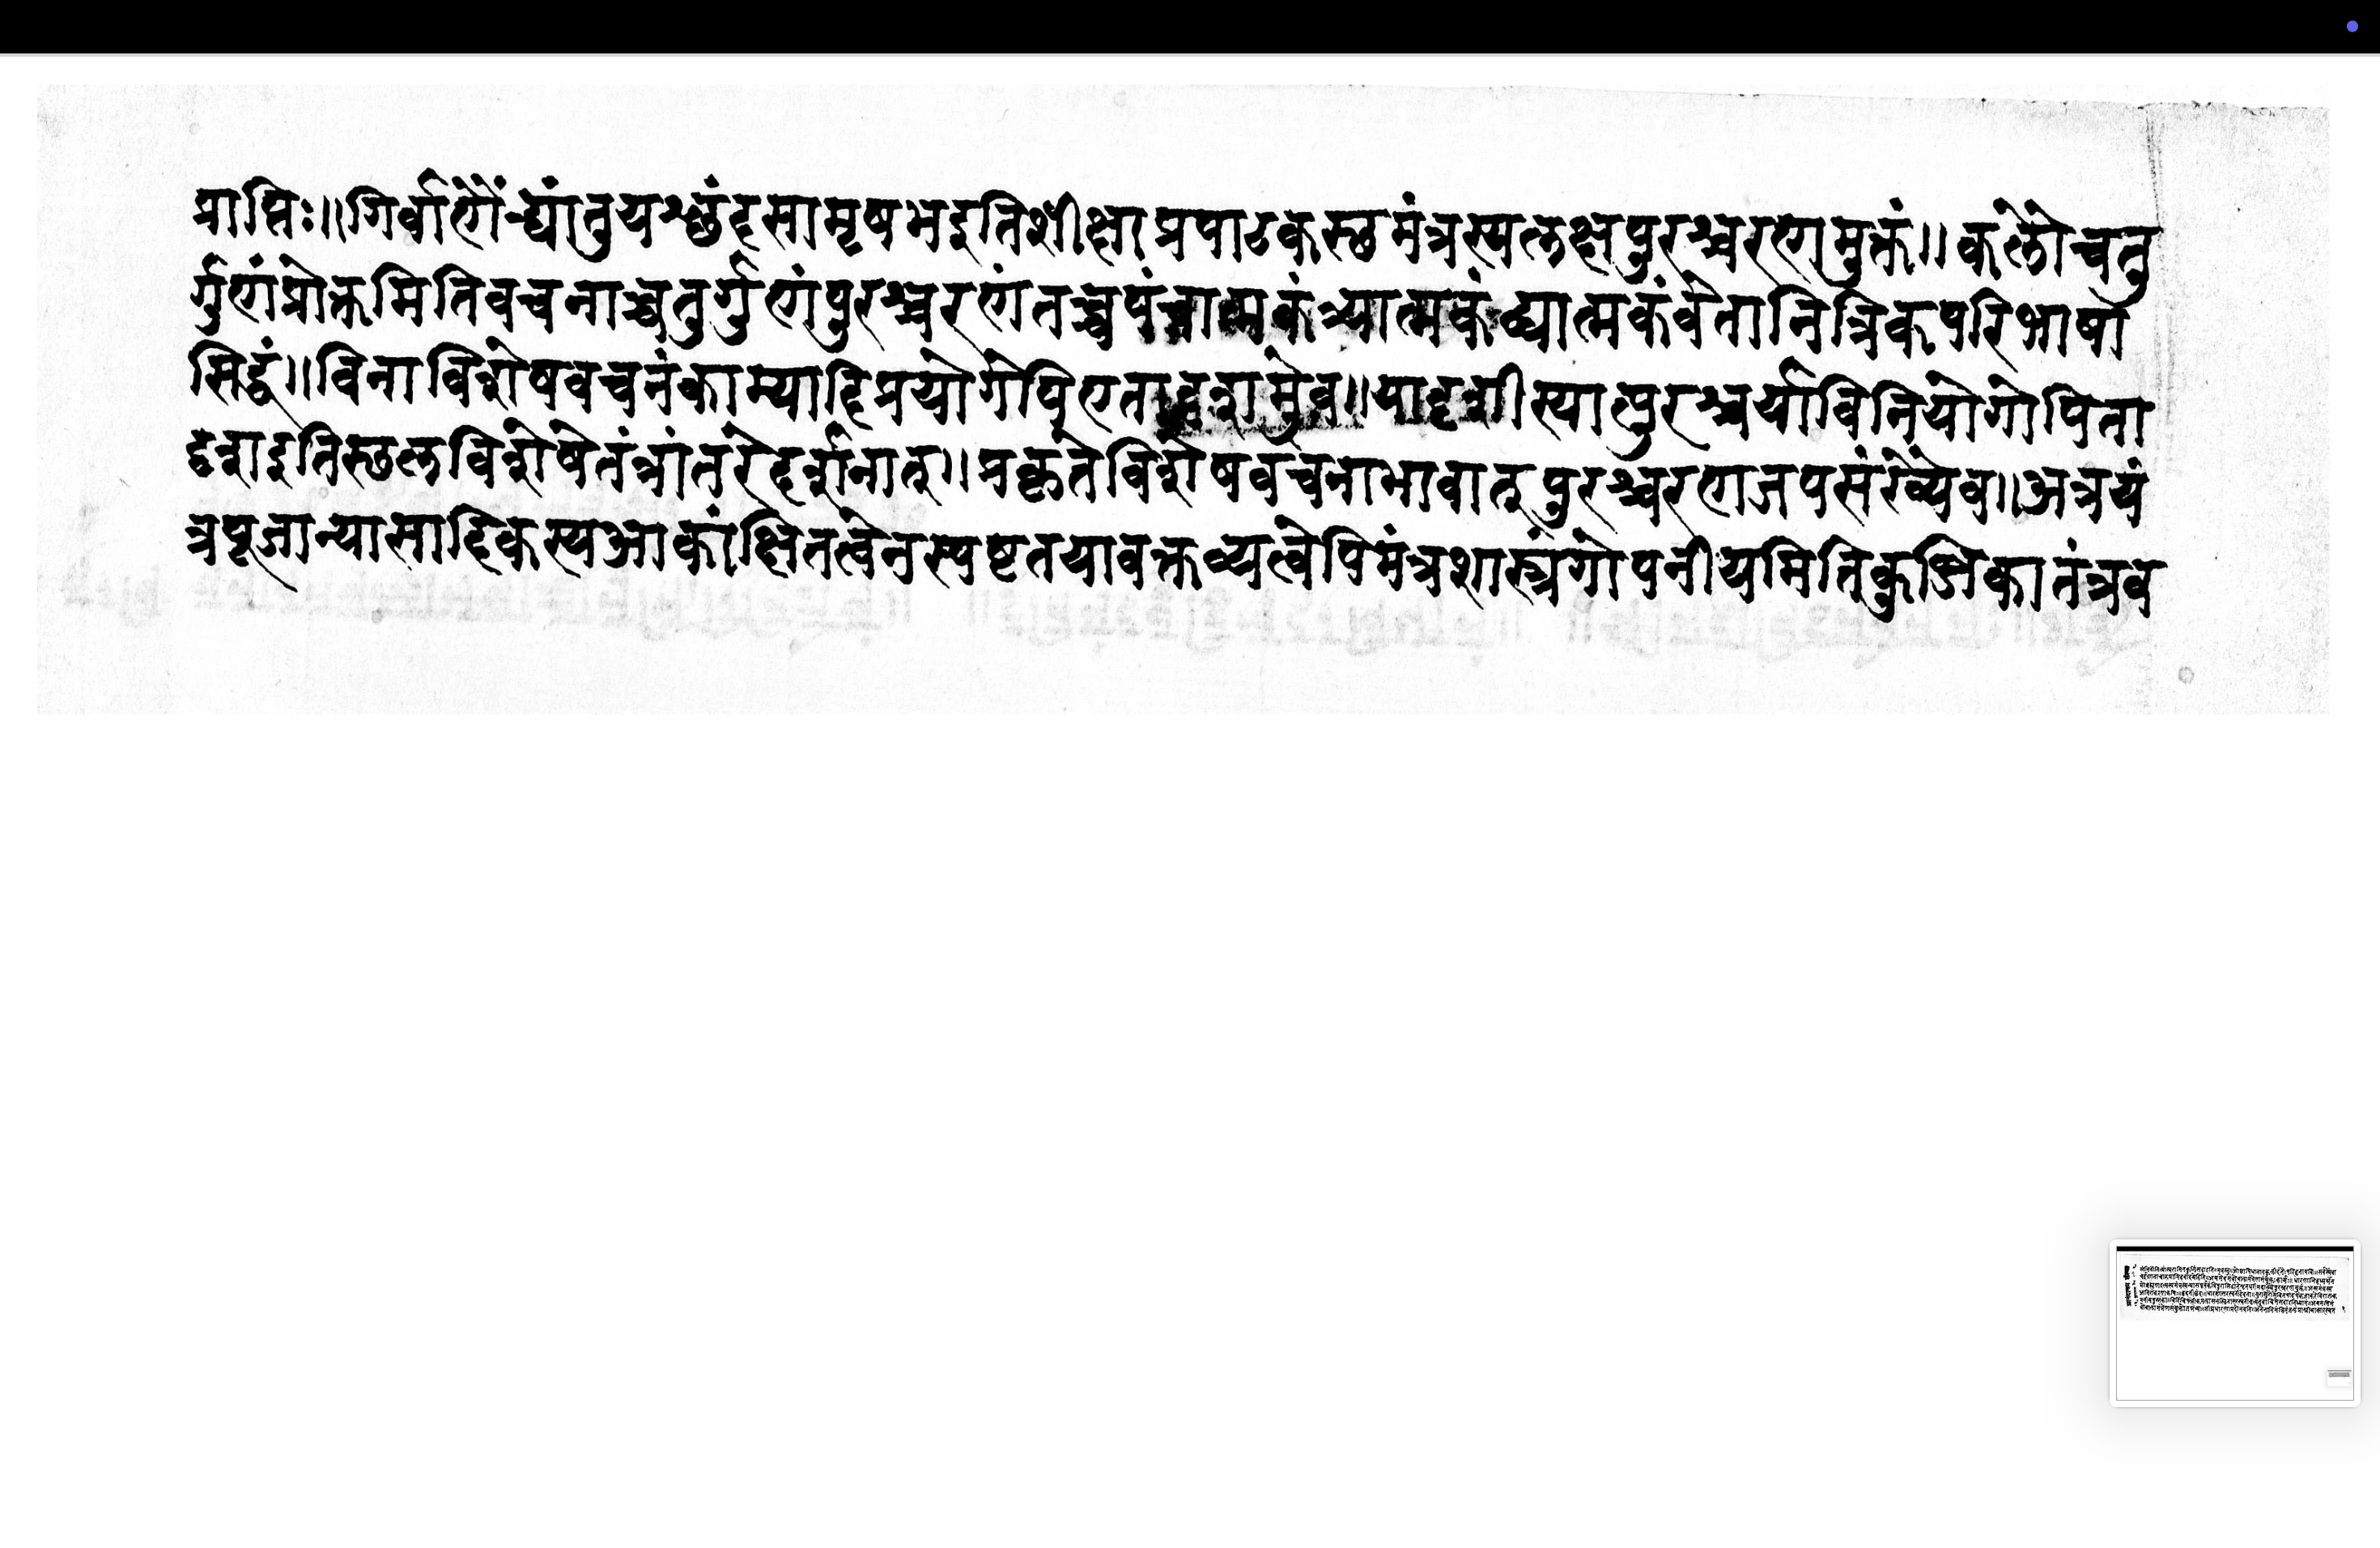 प्राप्तिः॥गिर्वाणैंद्यांतुयश्छंदसामृषभइतिशीक्षाप्रपाठकस्छमंत्रस्यलक्षपुरश्चरणमुक्तं॥कलौचतु
र्गुणंप्रोक्तमितिवचनाच्चतुर्गुणंपुरश्चरणंतच्चपंचात्मकंत्र्यात्मकंद्व्यात्मकंवेतानित्रिकपरिभाषा
सिद्धं॥विनाविशेषवचनंकाम्यादिप्रयोगेपिएतादृशमेव॥यादृशीस्यात्पुरश्चर्याविनियोगोपिता
दृशइतिस्छलविशेषेतंत्रांतरेदर्शनात्॥प्रकृतेविशेषवचनाभावात्पुरश्चरणजपसंख्यैव॥अत्रयं
त्रपूजान्यासादिकस्यआकांक्षितत्वेनस्पष्टतयावक्तव्यत्वेपिमंत्रशास्त्रंगोपनीयमितिकुञ्जिकातंत्रव